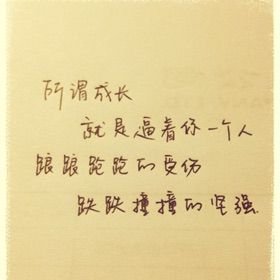 所谓成长
就是逼着你一个人
踉踉跄跄的受伤
跌跌撞撞的坚强